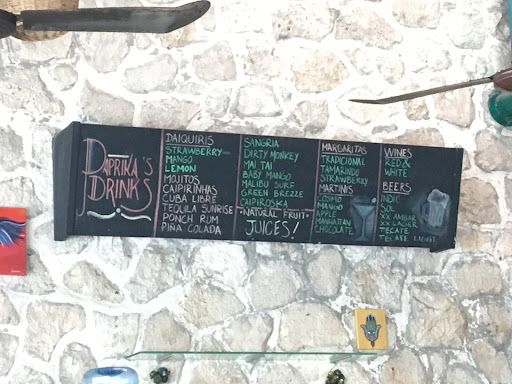 PAPRIKA'S
DRINKS
DAIQUIRIS
STRAWBERRY
MANGO
LEMON
MOJITOS
CAIPIRINHAS
CUBA LIBRE
TEQUILA SUNRISE
PONCH RUM
PIÑA COLADA
SANGRIA
DIRTY MONKEY
MAI TAI
BABY MANGO
MALIBU SURF
GREEN BREZZE
CAIPIROSKA
NATURAL FRUIT
JUICES!
MARGARITAS
TRADICIONAL
TAMARINDO
STRAWBERRY
MARTINIS
COSMO
MANGO
APPLE
MANHATTAN
CHOCOLATE
WINES
RED &
WHITE
BEERS
INDIO
SOL
XX AMBAR
XX LAGUER
TECATE
TECATE LIGHT